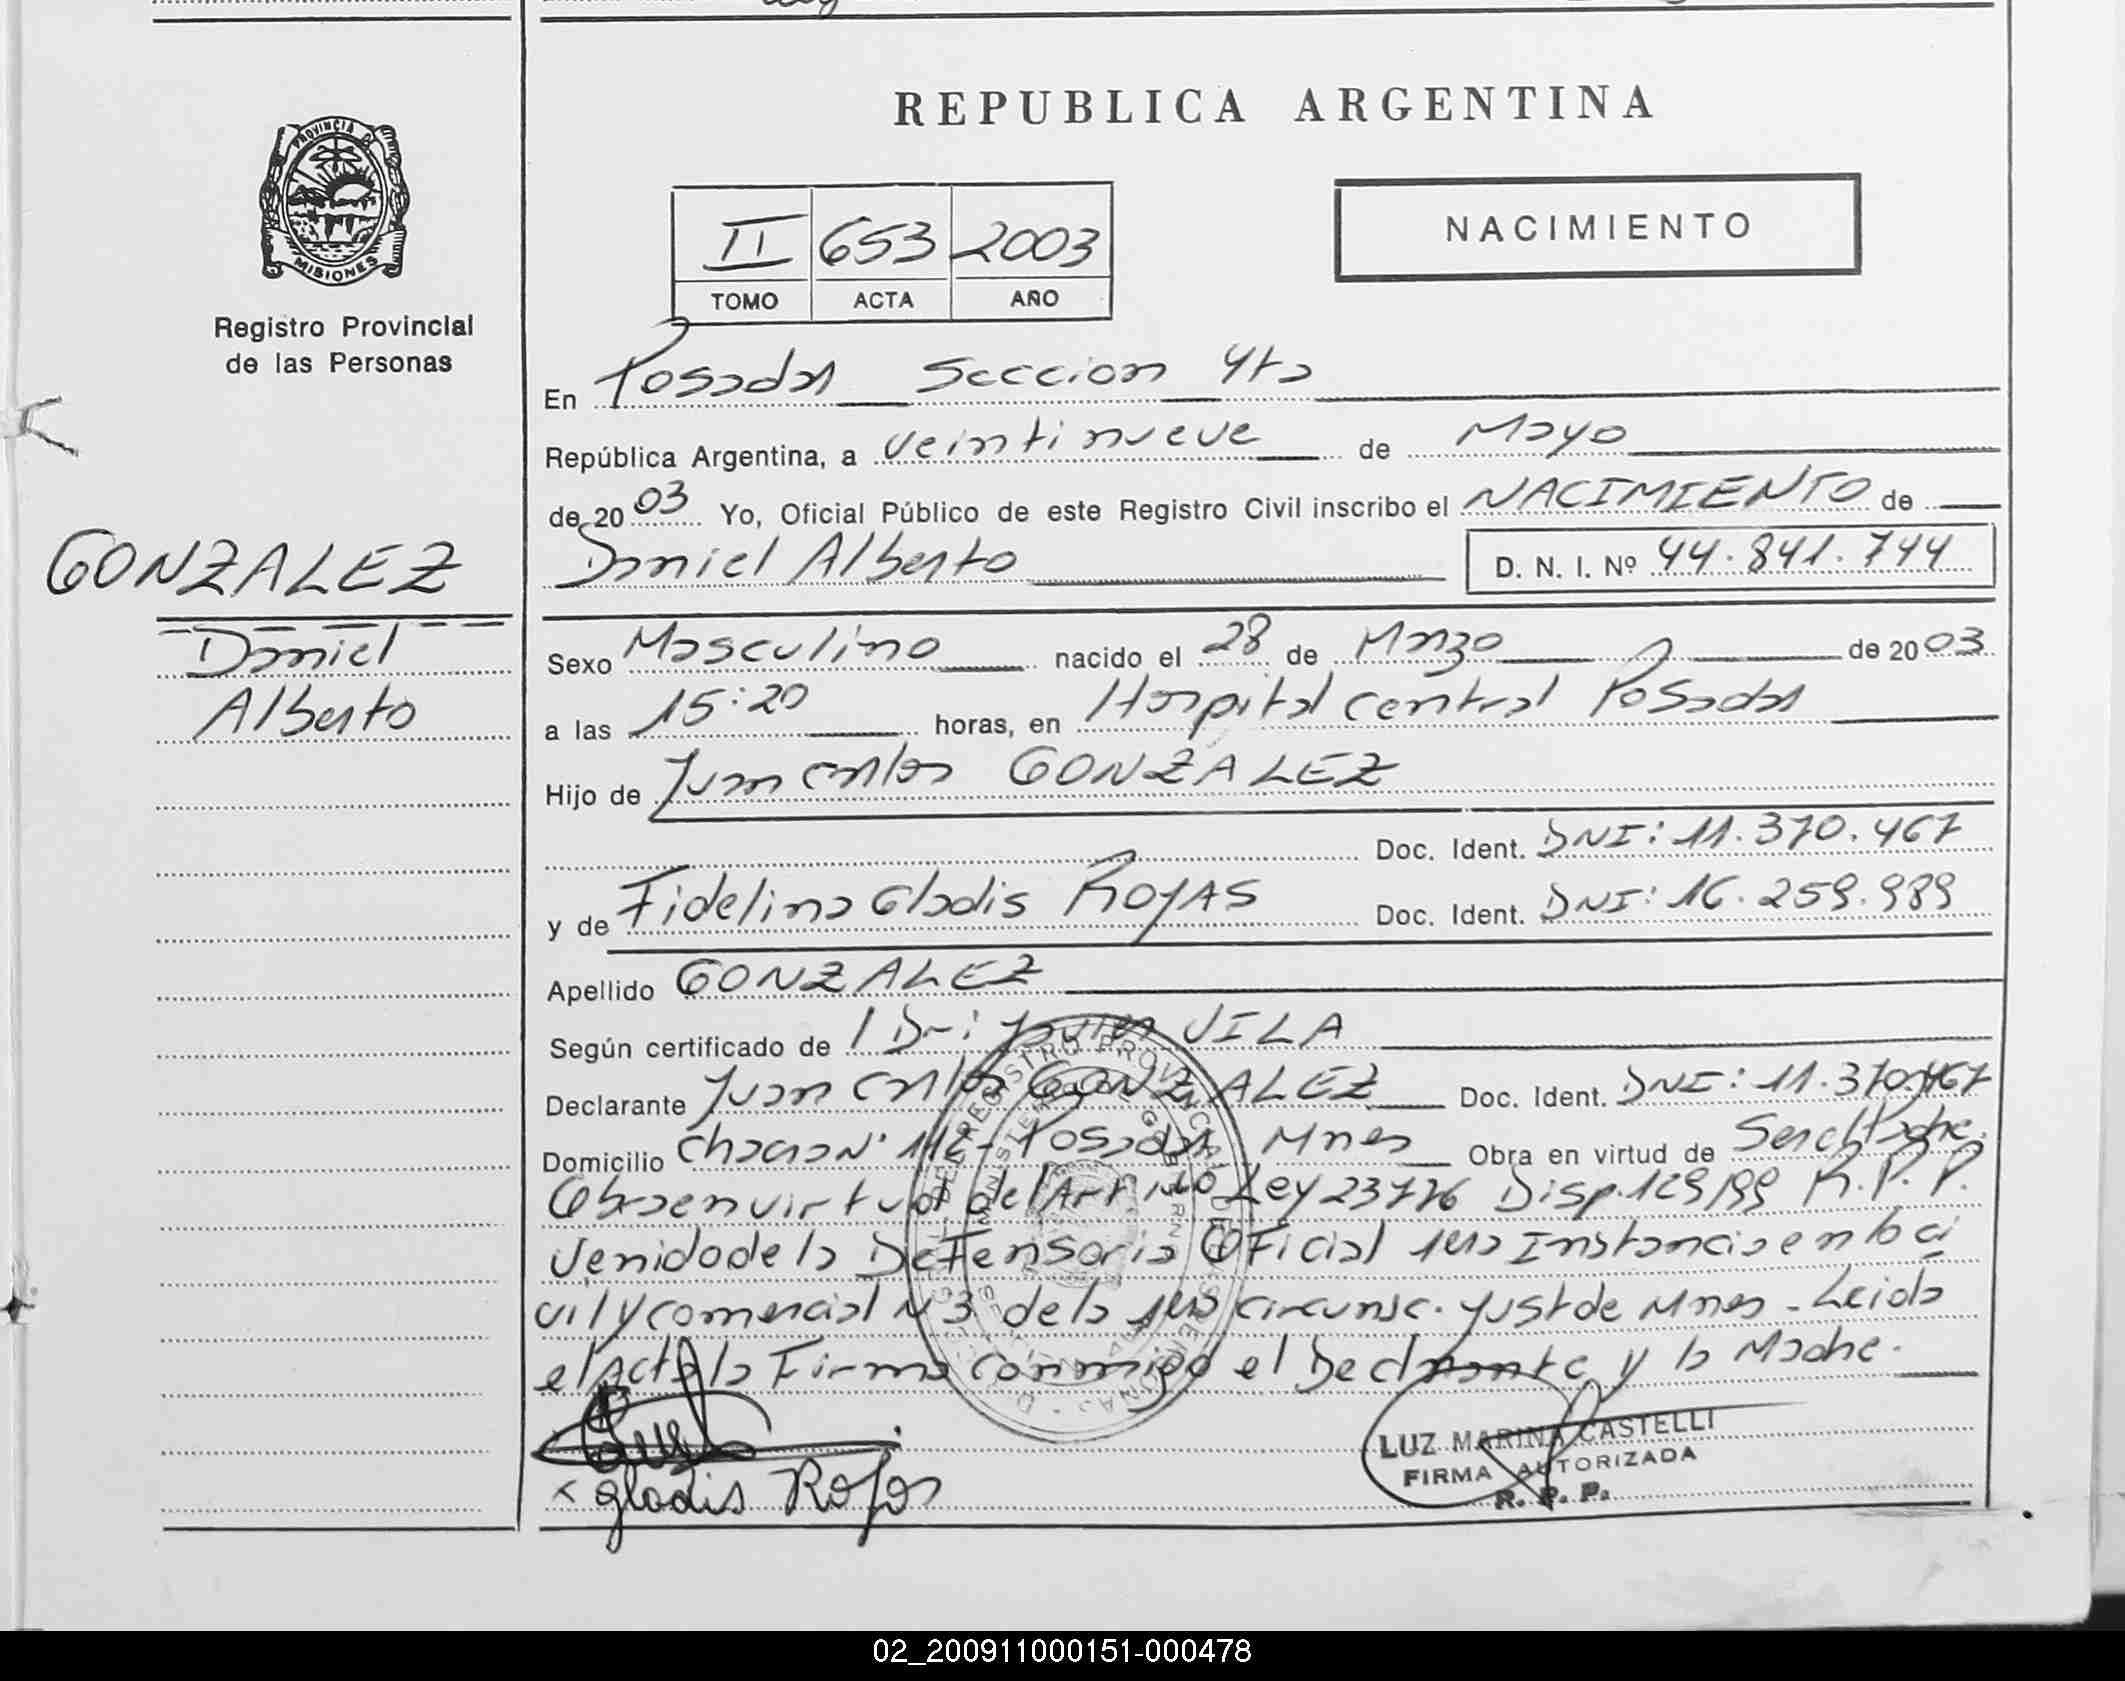 REPUBLICA ARGENTINA
PROVINCIA DE
MISIONES
Registro Provincial
de las Personas
II 653 2003
TOMO ACTA AÑO
NACIMIENTO
En Posadas Seccion 4ta
República Argentina, a veintinueve de Mayo
de 20 03 Yo, Oficial Público de este Registro Civil inscribo el NACIMIENTO de
Daniel Alberto D. N. I. Nº 44.841.744
GONZALEZ
Daniel
Alberto
Sexo Masculino nacido el 28 de Marzo de 20 03
a las 15:20 horas, en Hospital central Posadas
Hijo de Juan Carlos GONZALEZ
Doc. Ident. DNI: 11.370.467
y de Fidelina Gladis ROJAS Doc. Ident. DNI: 16.259.989
Apellido GONZALEZ
Según certificado de / Dr: Javier VILA
Declarante Juan Carlos GONZALEZ Doc. Ident. DNI: 11.370.467
Domicilio Posadas Mnes Obra en virtud de Ser el Padre.
Obra en virtud del Art Ley 23776 Disp. 129/99 R.P.P.
Venido de la Defensoria Oficial 1era Instancia en lo ci
vil y comercial N 3 de la 1era circunsc. Just de Mnes - Leida
el Acta la Firma conmigo el Declarante y la Madre.
x gladis Rojas
LUZ MARINA CASTELLI
FIRMA AUTORIZADA
R. P. P.
02_200911000151-000478